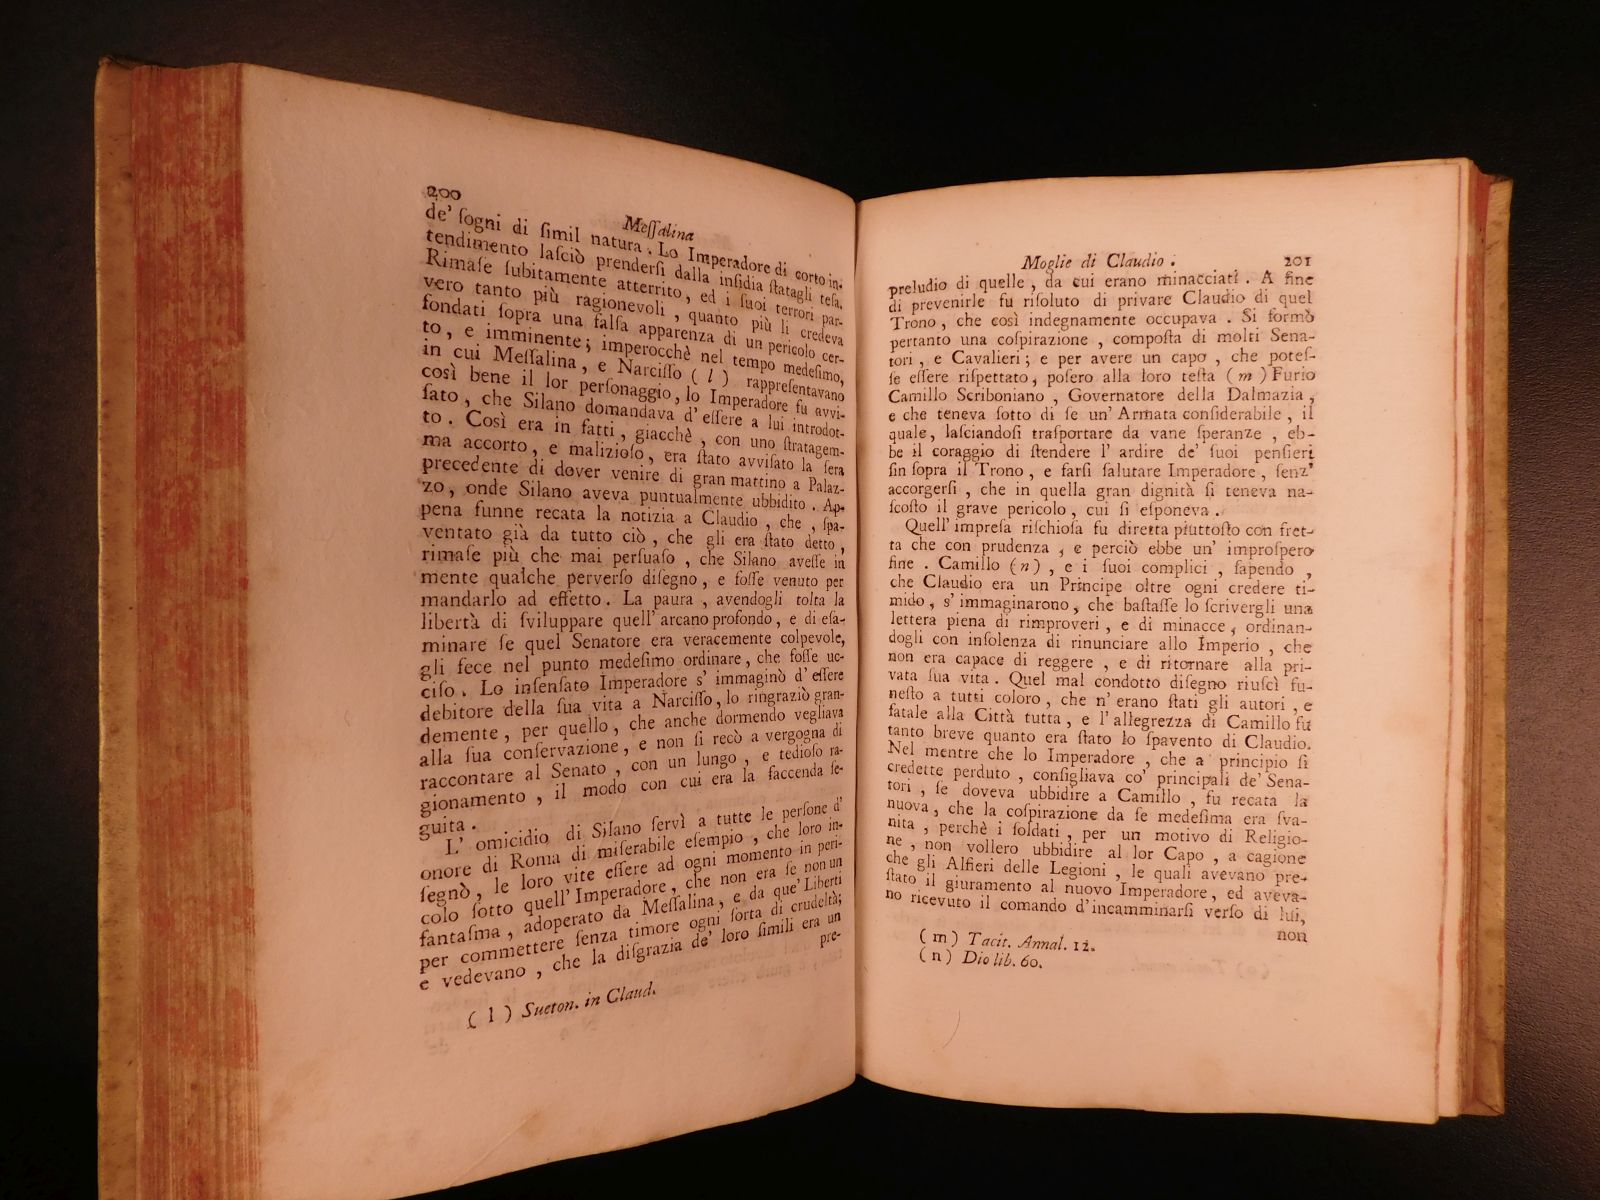 200
Meſſalina
de' ſogni di ſimil natura. Lo Imperadore di corto in-
tendimento laſciò prenderſi dalla inſidia ſtatagli teſa.
Rimaſe ſubitamente atterrito, ed i ſuoi terrori par-
vero tanto più ragionevoli, quanto più li credeva
fondati ſopra una falſa apparenza di un pericolo cer-
to, e imminente; imperocchè nel tempo medeſimo,
in cui Meſſalina, e Narciſſo (l) rappreſentavano
così bene il lor perſonaggio, lo Imperadore fu avvi-
ſato, che Silano domandava d'eſſere a lui introdot-
to. Così era in fatti, giacchè, con uno ſtratagem-
ma accorto, e malizioſo, era ſtato avviſato la ſera
precedente di dover venire di gran mattino a Palaz-
zo, onde Silano aveva puntualmente ubbidito. Ap-
pena funne recata la notizia a Claudio, che, ſpa-
ventato già da tutto ciò, che gli era ſtato detto,
rimaſe più che mai perſuaſo, che Silano aveſſe in
mente qualche perverſo diſegno, e foſſe venuto per
mandarlo ad effetto. La paura, avendogli tolta la
libertà di ſviluppare quell'arcano profondo, e di eſa-
minare ſe quel Senatore era veracemente colpevole,
gli fece nel punto medeſimo ordinare, che foſſe uc-
ciſo. Lo inſenſato Imperadore s'immaginò d'eſſere
debitore della ſua vita a Narciſſo, lo ringraziò gran-
demente, per quello, che anche dormendo vegliava
alla ſua conſervazione, e non ſi recò a vergogna di
raccontare al Senato, con un lungo, e tedioſo ra-
gionamento, il modo con cui era la faccenda ſe-
guita.
L'omicidio di Silano ſervì a tutte le perſone d'
onore di Roma di miſerabile eſempio, che loro in-
ſegnò, le loro vite eſſere ad ogni momento in peri-
colo ſotto quell'Imperadore, che non era ſe non un
fantaſma, adoperato da Meſſalina, e da que' Liberti
per commettere ſenza timore ogni ſorta di crudeltà;
e vedevano, che la diſgrazia de' loro ſimili era un
pre-
( l ) Sueton. in Claud.
Moglie di Claudio.
201
preludio di quelle, da cui erano minacciati. A fine
di prevenirle fu riſoluto di privare Claudio di quel
Trono, che così indegnamente occupava. Si formò
pertanto una coſpirazione, compoſta di molti Sena-
tori, e Cavalieri; e per avere un capo, che poteſ-
ſe eſſere riſpettato, poſero alla loro teſta (m) Furio
Camillo Scriboniano, Governatore della Dalmazia,
e che teneva ſotto di ſe un'Armata conſiderabile, il
quale, laſciandoſi traſportare da vane ſperanze, eb-
be il coraggio di ſtendere l'ardire de' ſuoi penſieri
ſin ſopra il Trono, e farſi ſalutare Imperadore, ſenz'
accorgerſi, che in quella gran dignità ſi teneva na-
ſcoſto il grave pericolo, cui ſi eſponeva.
Quell'impreſa riſchioſa fu diretta piuttoſto con fret-
ta che con prudenza, e perciò ebbe un' improſpero
fine. Camillo (n), e i ſuoi complici, ſapendo,
che Claudio era un Principe oltre ogni credere ti-
mido, s'immaginarono, che baſtaſſe lo ſcrivergli una
lettera piena di rimproveri, e di minacce, ordinan-
dogli con inſolenza di rinunciare allo Imperio, che
non era capace di reggere, e di ritornare alla pri-
vata ſua vita. Quel mal condotto diſegno riuſcì fu-
neſto a tutti coloro, che n'erano ſtati gli autori, e
fatale alla Città tutta, e l'allegrezza di Camillo fu
tanto breve quanto era ſtato lo ſpavento di Claudio.
Nel mentre che lo Imperadore, che a principio ſi
credette perduto, conſigliava co' principali de' Sena-
tori, ſe doveva ubbidire a Camillo, fu recata la
nuova, che la coſpirazione da ſe medeſima era ſva-
nita, perchè i ſoldati, per un motivo di Religio-
ne, non vollero ubbidire al lor Capo, a cagione
che gli Alfieri delle Legioni, le quali avevano pre-
ſtato il giuramento al nuovo Imperadore, ed aveva-
no ricevuto il comando d'incamminarſi verſo di lui,
non
( m ) Tacit. Annal. 12.
( n ) Dio lib. 60.